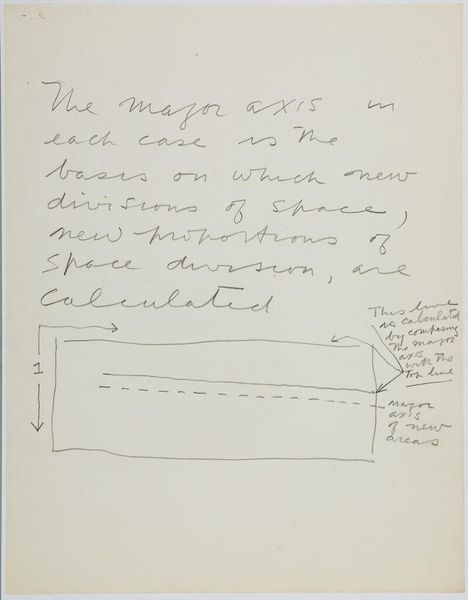 The major axis in
each case is the
basis on which new
divisions of space,
new proportions of
space division, are
calculated
This line
is calculated
by comparing
the major
axis
with the
top line
1
major
axis
of new
areas